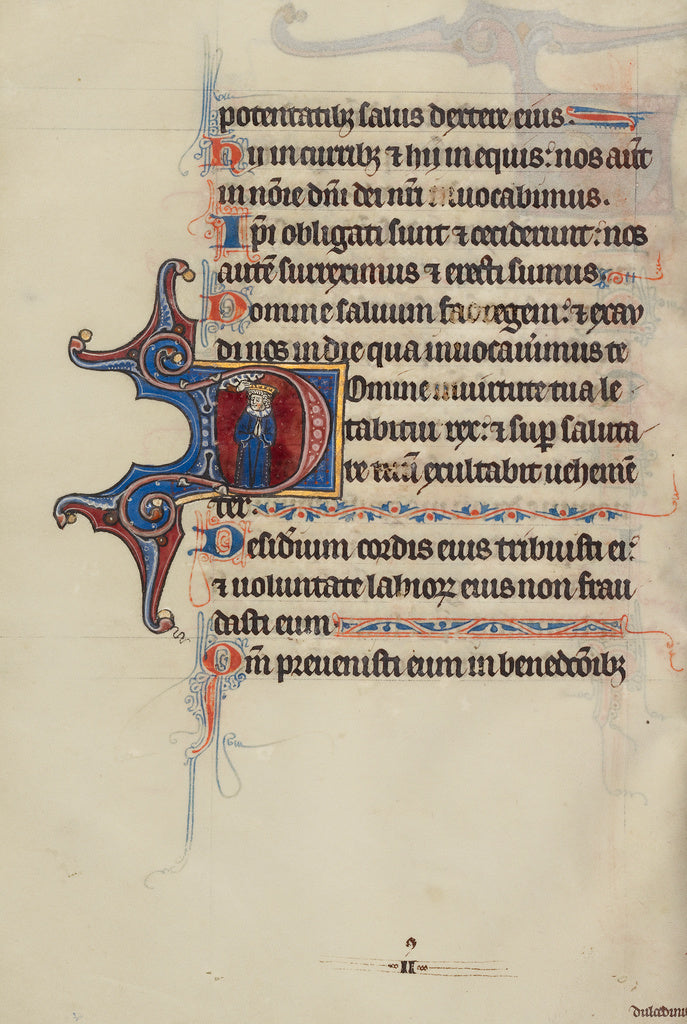 potentatibȝ salus dextere eius.
Hii in curribȝ ⁊ hij in equis: nos aut̄
in nōīe dn̄i dei nr̄i inuocabimus.
Ipi obligati sunt ⁊ ceciderunt: nos
autē surreximus ⁊ erecti sumus
Domine saluum fac regem: ⁊ exau
di nos in die qua inuocauimus te
Domine in uirtute tua le
tabitur rex: ⁊ sup̄ saluta
re exultabit uehemē
ter.
Desid'ium cordis eius tribuisti ei:
⁊ uoluntate labioꝝ eius non frau
dasti eum
Qm̄ preuenisti eum in bened̄c̄oībȝ
II
dulcedinis